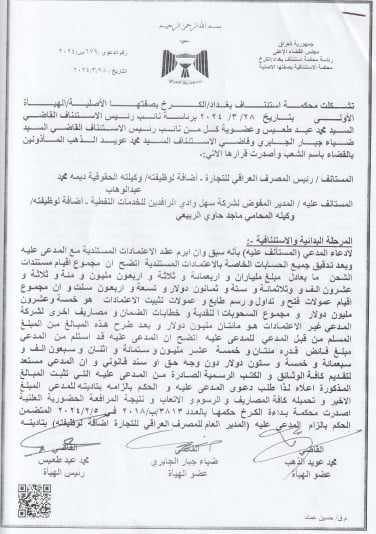 بسم الله الرحمن الرحيم
جمهورية العراق
مجلس القضاء الاعلى
رئاسة محكمة استئناف بغداد/الكرخ
محكمة الاستئنافية بصفتها الاصلية
رقم الدعوى /٦٧٩/س/٢٠٢٤
التاريخ /٢٠٢٤/٣/٢٨
تشكلت محكمة استئناف بغداد/الكرخ بصفتها الأصلية/الهيأة
الأولى بتاريخ ٢٨/ ٣/ ٢٠٢٤ برئاسة نائب رئيس الاستئناف القاضي
السيد محمد عبد طعيس وعضوية كل من نائب رئيس الاستئناف القاضي السيد
ضياء جبار الجابري وقاضي الاستئناف السيد محمد عويد الذهب المأذونين
بالقضاء باسم الشعب وأصدرت قرارها الاتي:-
المستانف / رئيس المصرف العراقي للتجارة - أضافة لوظيفته/ وكيلته الحقوقية ديمه محمد
عبدالوهاب
المستانف عليه / المدير المفوض لشركة سهل وادي الرافدين للخدمات النفطية - اضافة لوظيفته/
وكيله المحامي ماجد حاوي الربيعي
المرحلة البدائية والاستئنافية :-
لادعاء المدعي (المستأنف عليه) بأنه سبق وان ابرم عقد الاعتمادات المستندية مع المدعى عليه
وبعد تدقيق جميع الحسابات الخاصة بالاعتمادات المستندية اتضح ان مجموع اقيام مستندات
الشحن ما يعادل مبلغ ملياران و اربعمائة و ثلاثة و اربعون مليون و مئة و ثلاثة و
عشرون الف و وثلاثمائة و ستة و ثمانون دولار و تسعة و اربعون سنت و ان مجموع
اقيام عمولات فتح و تداول و رسم طابع و عمولات تثبيت الاعتمادات هو خمسة وعشرون
مليون دولار و مجموع السحوبات النقدية و خطابات الضمان و مصاريف اخرى لشركة
المدعي غير الاعتمادات هو مائتان مليون دولار و بعد طرح هذه المبالغ من المبلغ
المسلم من قبل المدعي للمدعى عليه اتضح ان المدعى عليه قد استلم من المدعي
مبلغ فائض قدره مئتان و خمسة عشر مليون و ستمائة و اثنان و سبعون الف و
سبعمائة و خمسة و ستون دولار دون وجه حق او سند قانوني و ان المدعي مستعد
لتقديم كافة الوثائق و الكتب الرسمية الصادرة من المدعى عليه التي تثبت المبالغ
المذكورة اعلاه لذا طلب دعوى المدعى عليه و الحكم بالزامه بتاديته للمدعي المبلغ
الاخير و تحميله كافة المصاريف و الرسوم و الاتعاب و نتيجة المرافعة الحضورية العلنية
اصدرت محكمة بداءة الكرخ حكمها بالعدد ٣٨١٣/ب/٢٠١٨ في ٢٠٢٤/٢/٥ المتضمن
الحكم بالزام المدعى عليه (المدير العام للمصرف العراقي للتجارة اضافة لوظيفته) بتاديته
القاضي
محمد عويد الذهب
عضو الهيأة
القاضي
ضياء جبار الجابري
عضو الهيأة
القاضي
محمد عبد طعيس
رئيس الهيأة
م.ق/ حسين عماد